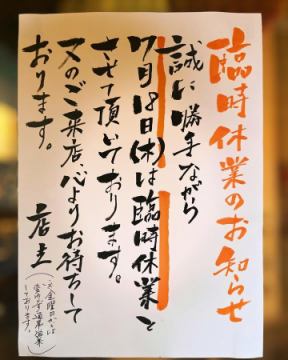 臨時休業のお知らせ
誠に勝手ながら
7月18日(木)は臨時休業と
させて頂いております。
又のご来店、心よりお待ちして
おります。
店主